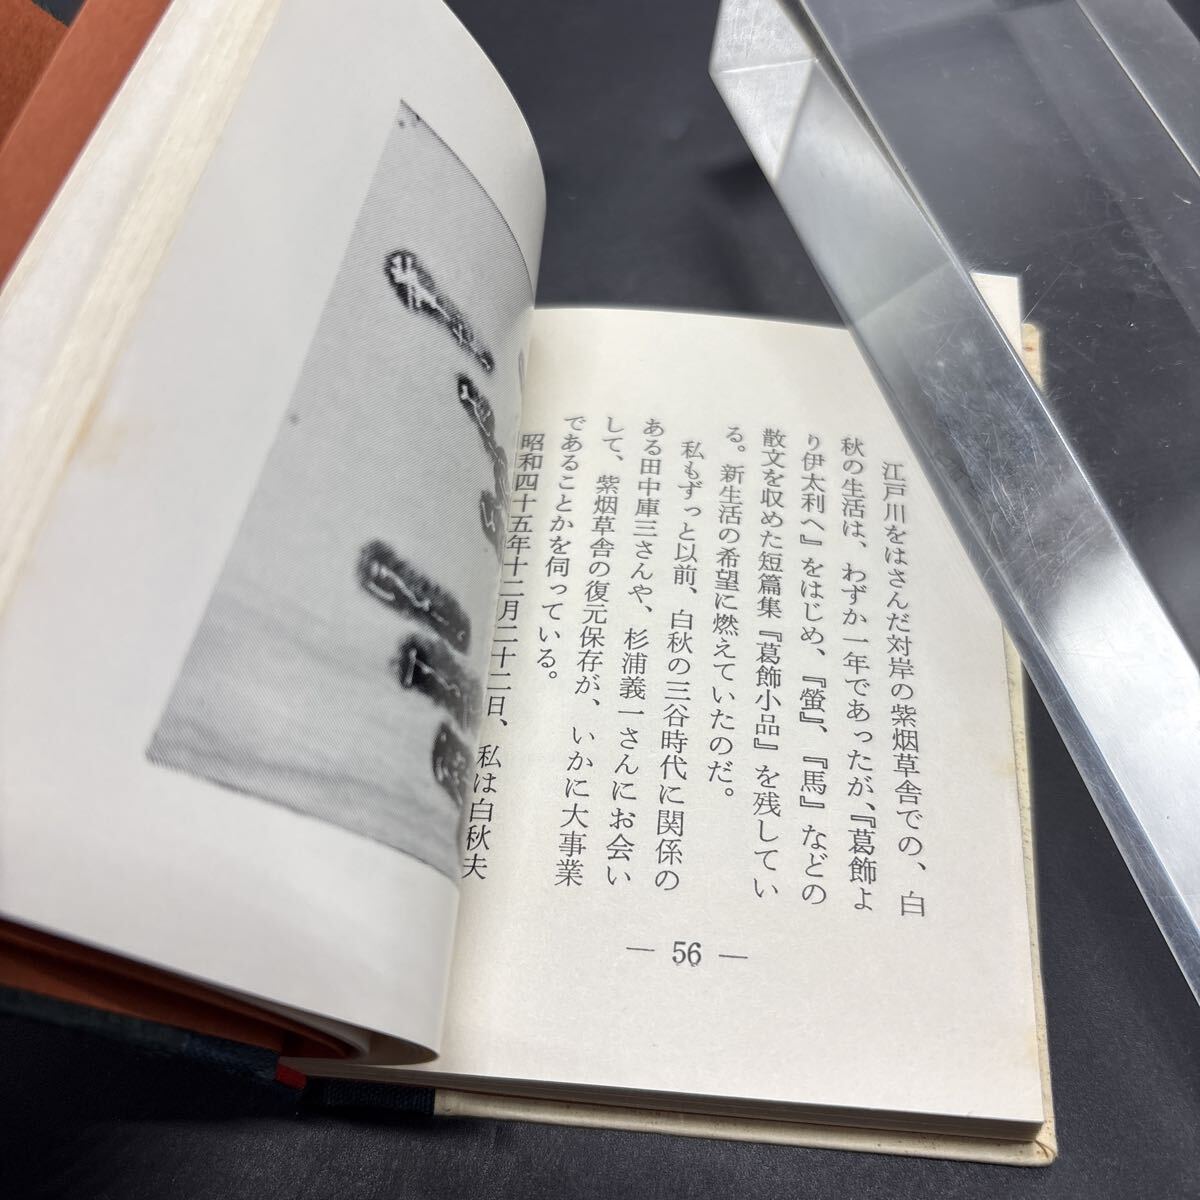 江戸川をはさんだ対岸の紫烟草舎での、白
秋の生活は、わずか一年であったが、『葛飾よ
り伊太利へ』をはじめ、『螢』、『馬』などの
散文を収めた短篇集『葛飾小品』を残してい
る。新生活の希望に燃えていたのだ。
私もずっと以前、白秋の三谷時代に関係の
ある田中庫三さんや、杉浦義一さんにお会い
して、紫烟草舎の復元保存が、いかに大事業
であることかを伺っている。
昭和四十五年十二月二十二日、私は白秋夫
— 56 —